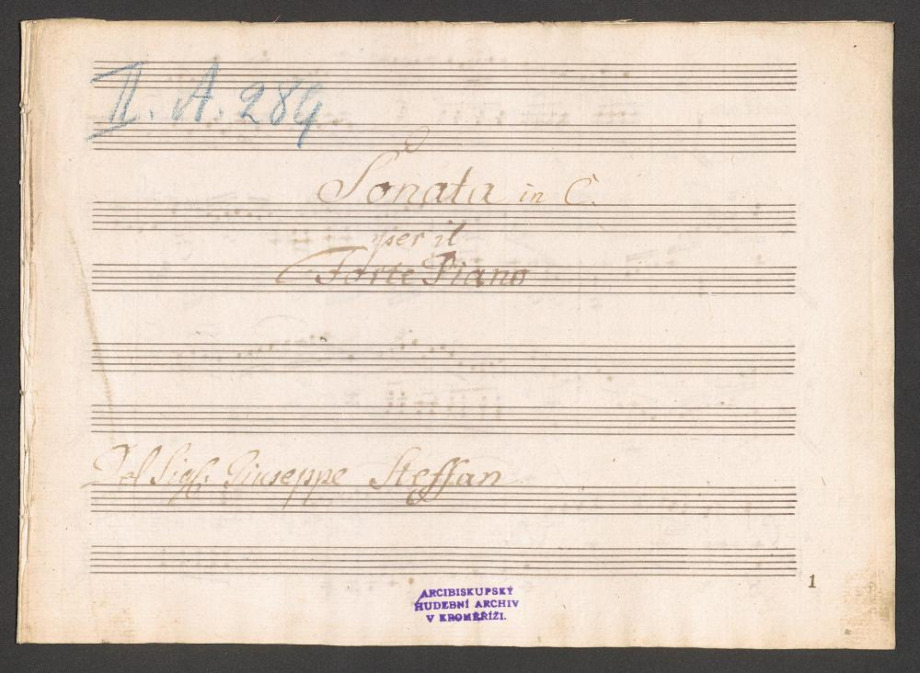 II. A. 284
Sonata in C.
per il
Forte Piano
Del Sigl: Giuseppe Steffan
1
ARCIBISKUPSKÝ
HUDEBNÍ ARCHIV
V KROMĚŘÍŽI.